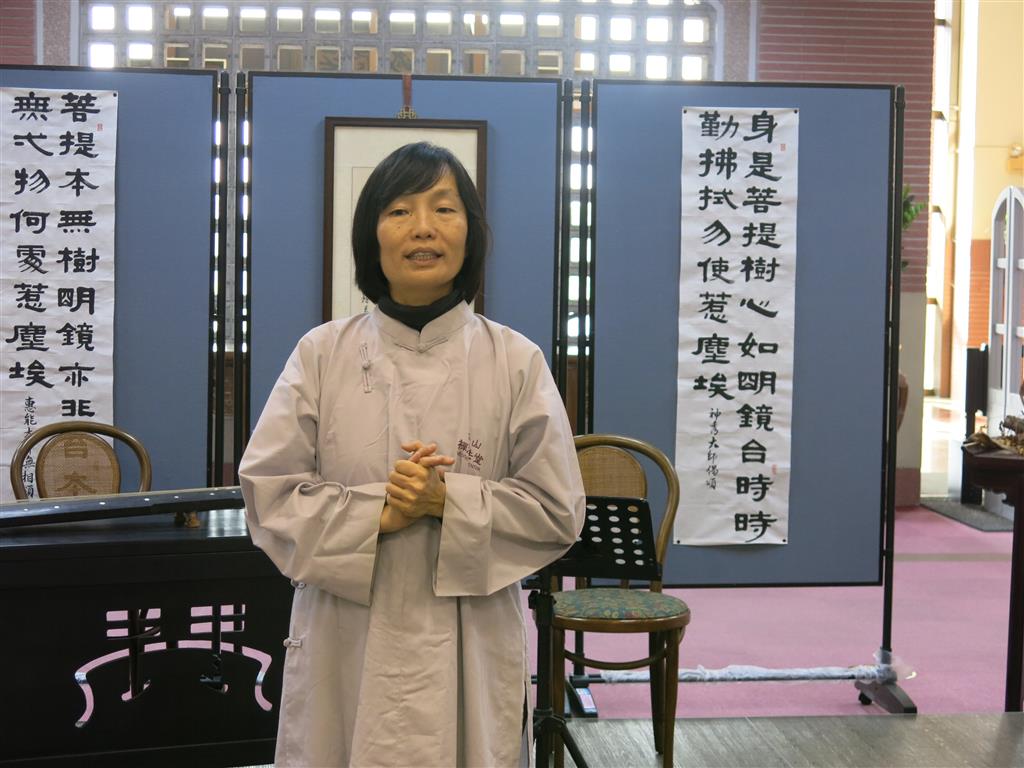 身是菩提樹心如明鏡台時時
勤拂拭勿使惹塵埃
神秀大師偈頌
菩提本無樹明鏡亦非台本
無弌物何處惹塵埃
惠能 無相頌
山